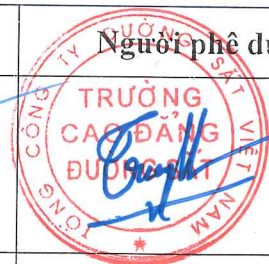 Người phê du
TỔNG CÔNG TY ĐƯỜNG SẮT VIỆT NAM
TRƯỜNG
CAO ĐẲNG
ĐƯỜNG SẮT